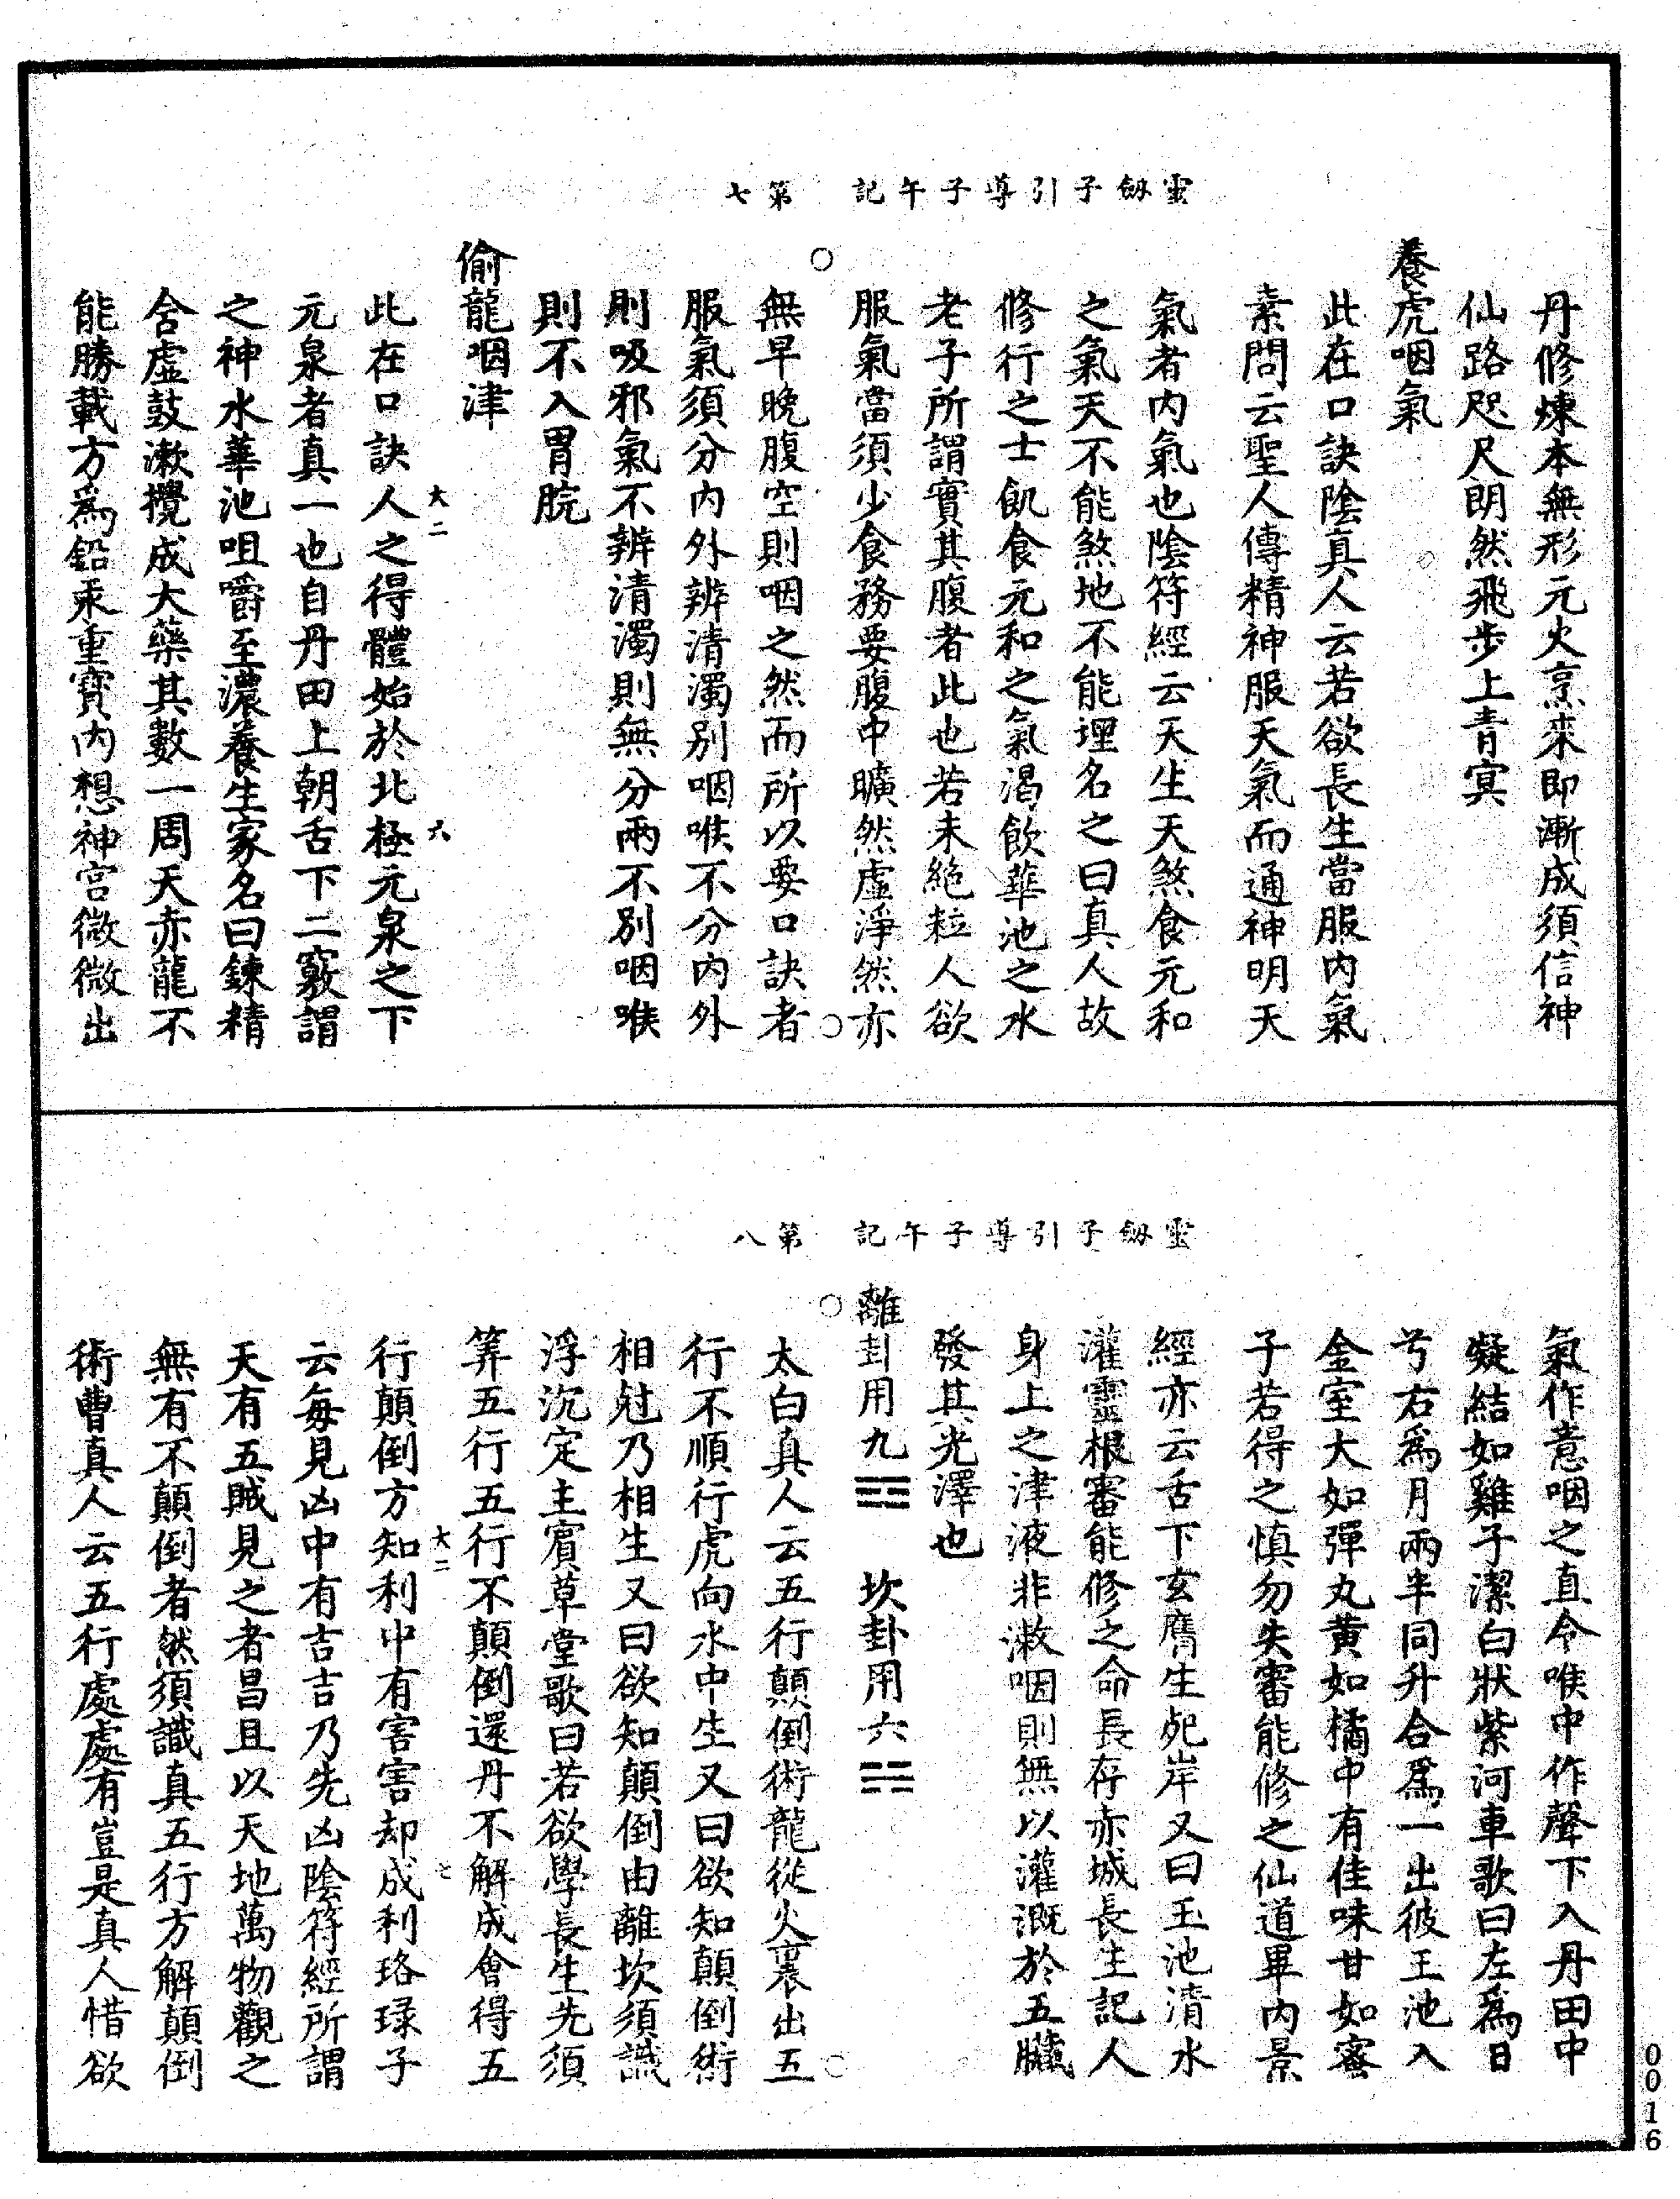 靈劔子引導子午記　第七
丹修煉本無形元火烹來即漸成須信神
仙路咫尺朗然飛步上青冥
養虎咽氣
此在口訣陰真人云若欲長生當服內氣
素問云聖人傳精神服天氣而通神明天
氣者內氣也陰符經云天生天煞食元和
之氣天不能煞地不能埋名之曰真人故
修行之士飢食元和之氣渴飲華池之水
老子所謂實其腹者此也若未絕粒人欲
服氣當須少食務要腹中曠然虛淨然亦
無早晚腹空則咽之然而所以要口訣者
服氣須分內外辨清濁別咽喉不分內外
則吸邪氣不辨清濁則無分兩不別咽喉
則不入胃脘
偷龍咽津
大二　六
此在口訣人之得體始於北極元泉之下
元泉者真一也自丹田上朝舌下二竅謂
之神水華池咀嚼至濃養生家名曰鍊精
含虛鼓漱攪成大藥其數一周天赤龍不
能勝載方爲鉛汞重寶內想神宮微微出
靈劔子引導子午記　第八
氣作意咽之直令喉中作聲下入丹田中
凝結如雞子潔白狀紫河車歌曰左爲日
兮右爲月兩半同升合爲一出彼玉池入
金室大如彈丸黃如橘中有佳味甘如蜜
子若得之慎勿失審能修之仙道畢內景
經亦云舌下玄膺生死岸又曰玉池清水
灌靈根審能修之命長存赤城長生記人
身上之津液非漱咽則無以灌溉於五臟
發其光澤也
離卦用九☲　坎卦用六☵
太白真人云五行顛倒術龍從火裏出五
行不順行虎向水中生又曰欲知顛倒術
相尅乃相生又曰欲知顛倒由離坎須識
浮沉定主賓草堂歌曰若欲學長生先須
筭五行五行不顛倒還丹不解成會得五
大二　七
行顛倒方知利中有害害却成利珞琭子
云每見凶中有吉吉乃先凶陰符經所謂
天有五賊見之者昌且以天地萬物觀之
無有不顛倒者然須識真五行方解顛倒
術曹真人云五行處處有豈是真人惜欲
0016